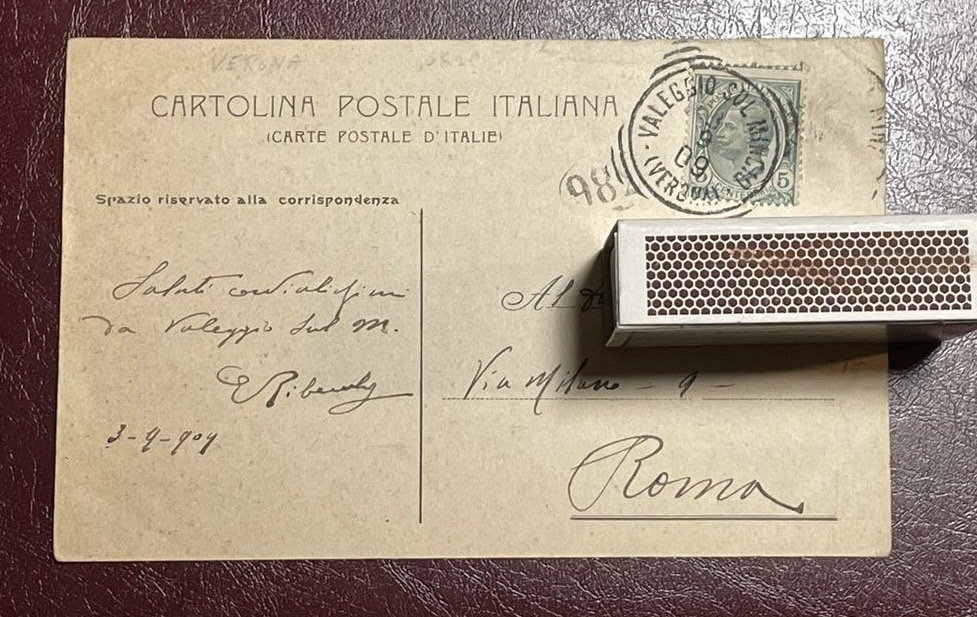 VERONA
CARTOLINA POSTALE ITALIANA
(CARTE POSTALE D'ITALIE)
VALEGGIO SUL MINCIO
9
09
(VERONA)
5
98
Spazio riservato alla corrispondenza
Saluti cordialissimi
da Valeggio sul M.
3-9-909
Al
Via Milano - 9 -
Roma